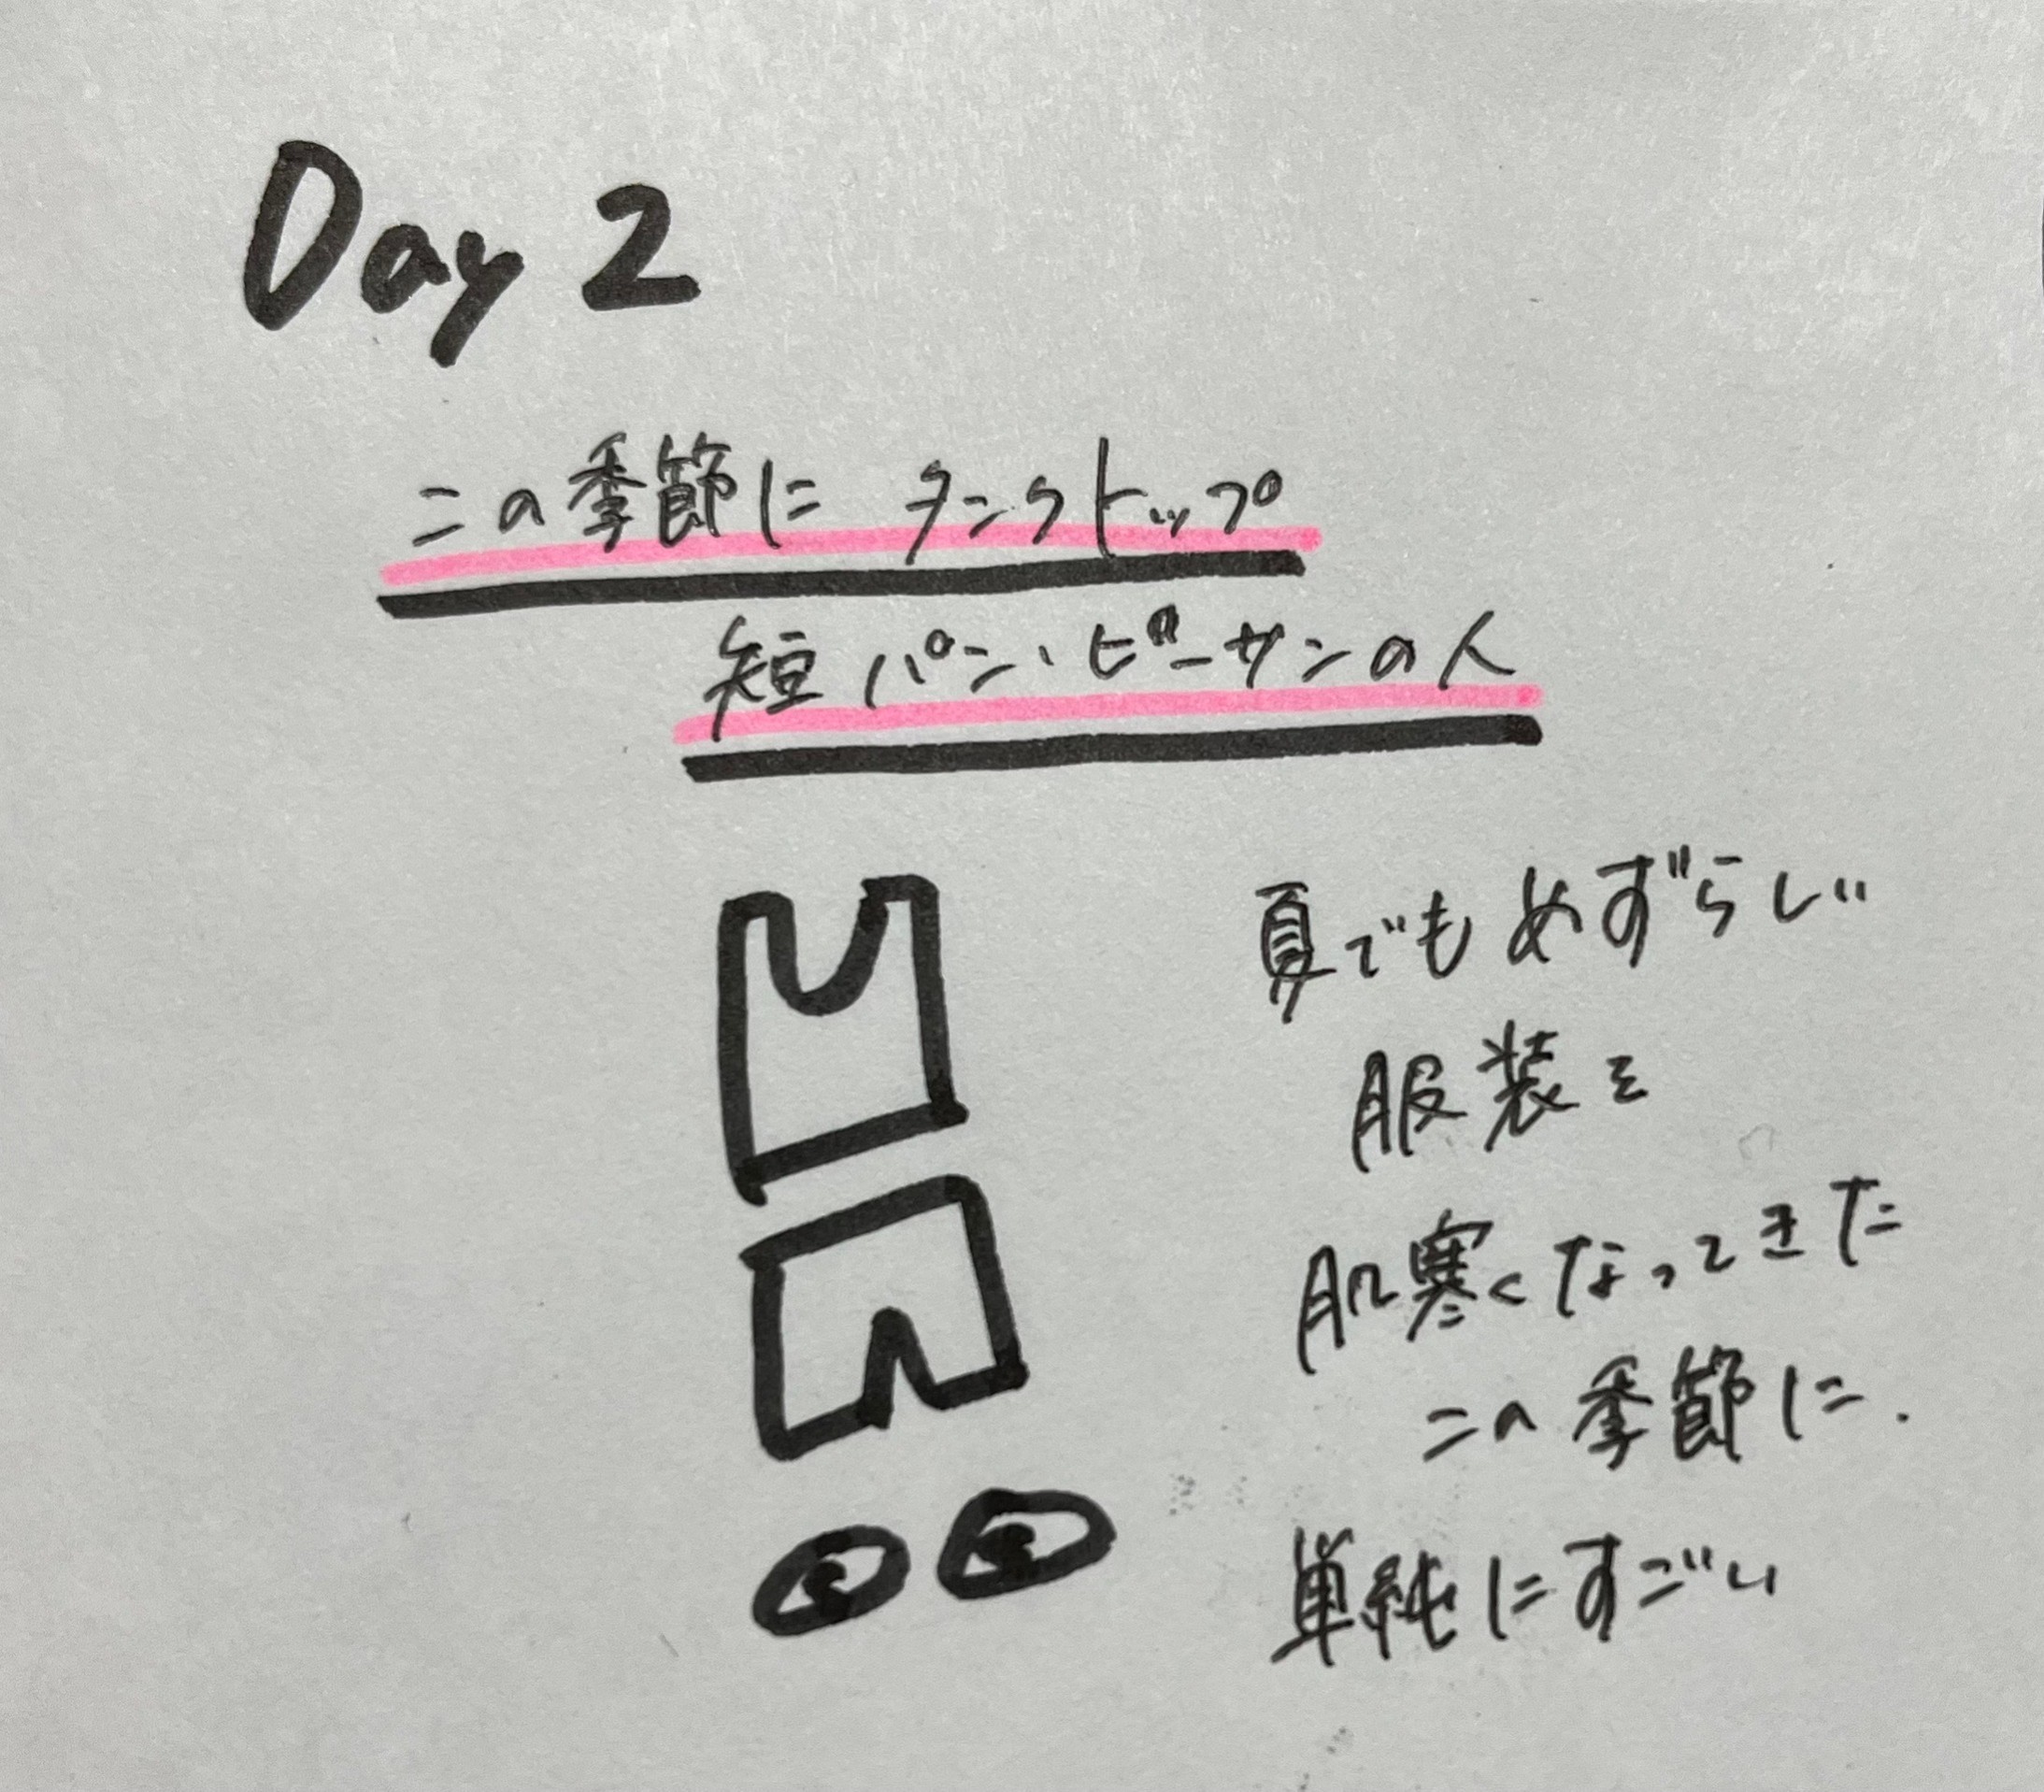 Day 2
この季節に タンクトップ
短パン、ビーサンの人
夏でもめずらしい
服装を
肌寒くなってきた
この季節に.
単純にすごい